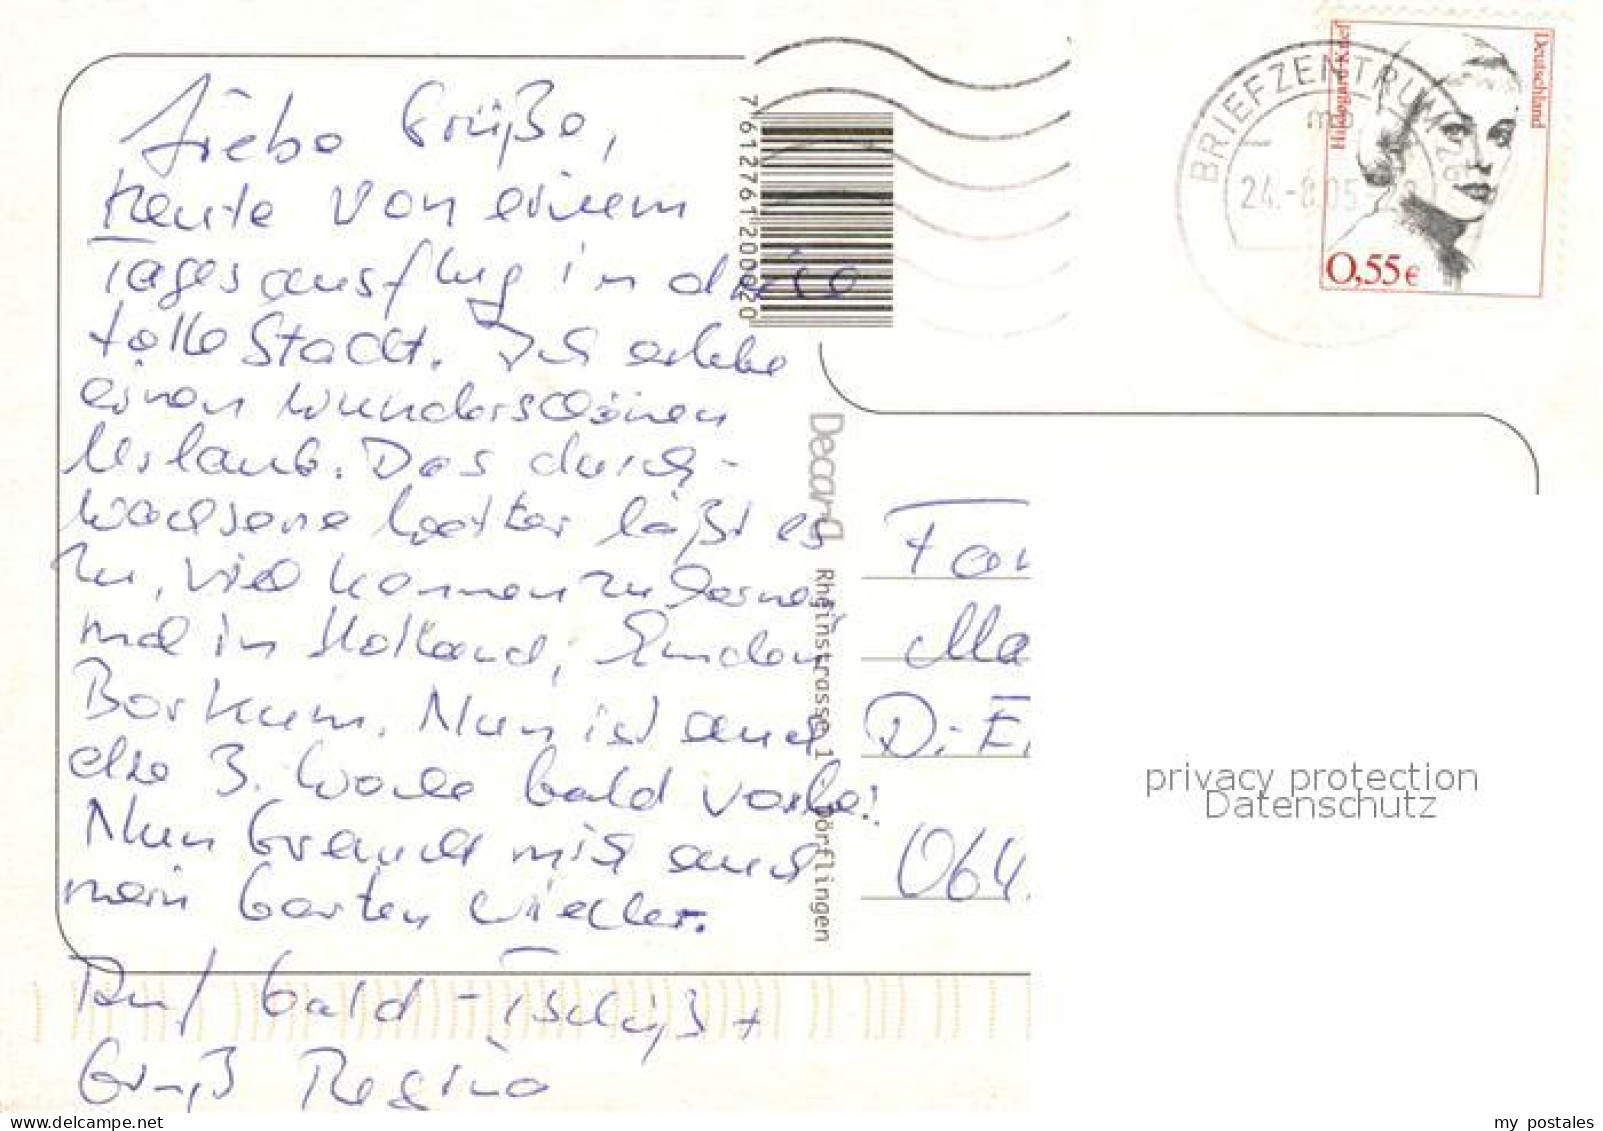 Liebe Grüße,
heute von einem
Tagesausflug in diese
tolle Stadt. Ich erlebe
einen wunderschönen
Urlaub. Das durch-
wachsene Wetter läßt es
zu, viel kennenzulernen
mal in Holland, Emden,
Borkum. Nun ist auch
die 3. Woche bald vorbei.
Nun braucht mich auch
mein Garten wieder.
Auf bald - Tschüß +
Gruß Regina
7 612761 200020
Decard Rheinstrasse 11 Dörflingen
BRIEFZENTRUM 26
24.-8.05
Hildegard Knef
Deutschland
0,55€
Fam
Ma
D.-E
064
privacy protection
Datenschutz
my postales